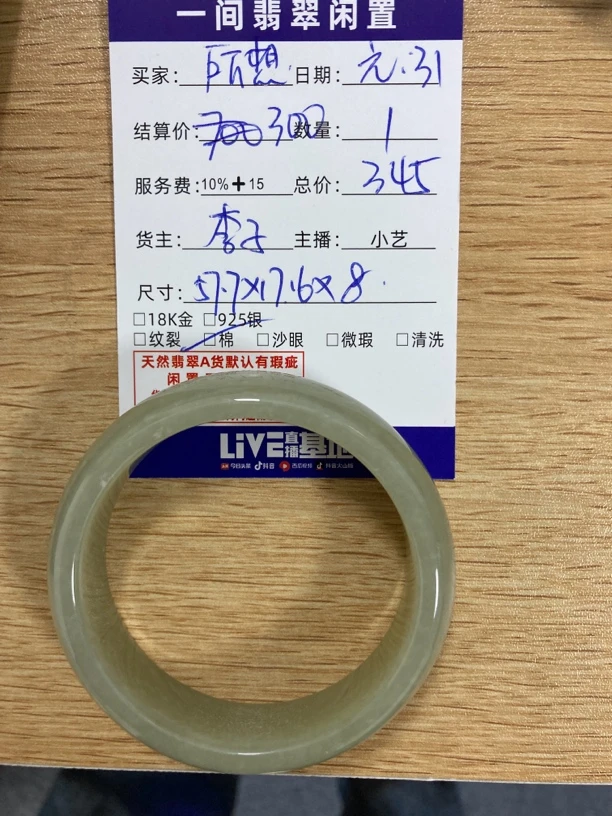 一间翡翠闲置
买家: 阿想 日期: 元.31
结算价: 300 数量: 1
服务费: 10%+15 总价: 345
货主: 李子 主播: 小艺
尺寸: 57.7×17.6×8
□18K金 □925银
□纹裂 □棉 □沙眼 □微瑕 □清洗
天然翡翠A货默认有瑕疵
闲置
LiVE直播基地
今日头条 抖音 西瓜视频 抖音火山版